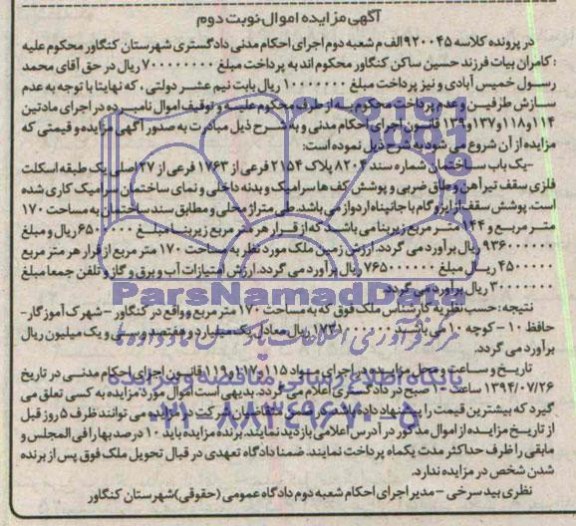 آگهی مزایده اموال نوبت دوم
در پرونده کلاسه ۹۲۰۰۴۵ الف م شعبه دوم اجرای احکام مدنی دادگستری شهرستان کنگاور محکوم علیه
: کامران بیات فرزند حسین ساکن کنگاور محکوم اند به پرداخت مبلغ ۷۰۰۰۰۰۰۰۰ ریال در حق آقای محمد
رسول خمیس آبادی و نیز پرداخت مبلغ ریال بابت نیم عشر دولتی ، که نهایتا با توجه به عدم
سازش طرفین و عدم پرداخت محکوم به از طرف محکوم علیه و توقیف اموال نامبرده در اجرای مادتین
۱۱۴ و ۱۱۸ و ۱۳۷ و ۱۳۹ قانون اجرای احکام مدنی و به شرح ذیل مبادرت به صدور آگهی مزایده و قیمتی که
مزایده از آن شروع می شود به شرح ذیل نموده است:
-یک باب ساختمان شماره سند ۸۲۰۴ پلاک ۲۱۵۴ فرعی از ۱۷۶۳ فرعی از ۲۷ اصلی یک طبقه اسکلت
فلزی سقف تیرآهن و طاق ضربی و پوشش کف ها سرامیک و بدنه داخلی و نمای ساختمان سرامیک کاری شده
است. پوشش سقف از ایزوگام با جانپناه اردواز می باشد. طی متراژ محلی و مطابق سند ساختمان به مساحت ۱۷۰
متر مربع و ۱۴۴ متر مربع زیربنا می باشد که از قرار هر متر مربع زیربنا مبلغ ۶۵۰۰۰۰۰ ریال و مبلغ
۹۳۶۰۰۰۰۰۰ ریال برآورد می گردد. ارزش زمین ملک مورد نظر به مساحت ۱۷۰ متر مربع از قرار هر متر مربع
۴۵۰۰۰۰۰ ریال مبلغ ۷۶۵۰۰۰۰۰۰ ریال برآورد می گردد. ارزش امتیازات آب و برق و گاز و تلفن جمعا مبلغ
۳۰۰۰۰۰۰۰ ریال برآورد می گردد.
ParsNamadData
نتیجه: حسب نظریه کارشناس ملک فوق که به مساحت ۱۷۰ متر مربع و واقع در کنگاور - شهرک آموزگار-
حافظ ۱۰ - کوچه ۱۰ می باشد ۱۷۳۱۰۰۰۰۰۰ ریال معادل یک میلیارد و هفتصد و سی و یک میلیون ریال
برآورد می گردد.
تاریخ و ساعت و محل مزایده در اجرای مواد ۱۱۵ و ۱۱۷ و ۱۱۹ قانون اجرای احکام مدنی در تاریخ
۱۳۹۴/۰۷/۲۶ ساعت ۱۰ صبح در دادگستری اعلام می گردد. بدیهی است اموال مورد مزایده به کسی تعلق می
گیرد که بیشترین قیمت را پیشنهاد داده باشد. ضمنا متقاضیان شرکت در مزایده می توانند ظرف ۵ روز قبل
از تاریخ مزایده از اموال مذکور در آدرس اعلامی بازدید نمایند. برنده مزایده باید ۱۰ درصد بها را فی المجلس و
مابقی را ظرف حداکثر مدت یکماه پرداخت نمایند. ضمنا دادگاه تعهدی در قبال تحویل ملک فوق پس از برنده
شدن شخص در مزایده ندارد.
نظری بید سرخی - مدیر اجرای احکام شعبه دوم دادگاه عمومی (حقوقی) شهرستان کنگاور
پایگاه اطلاع رسانی مناقصه و مزایده
۰۲۱-۸۸۳۴۹۶۷۰-۵